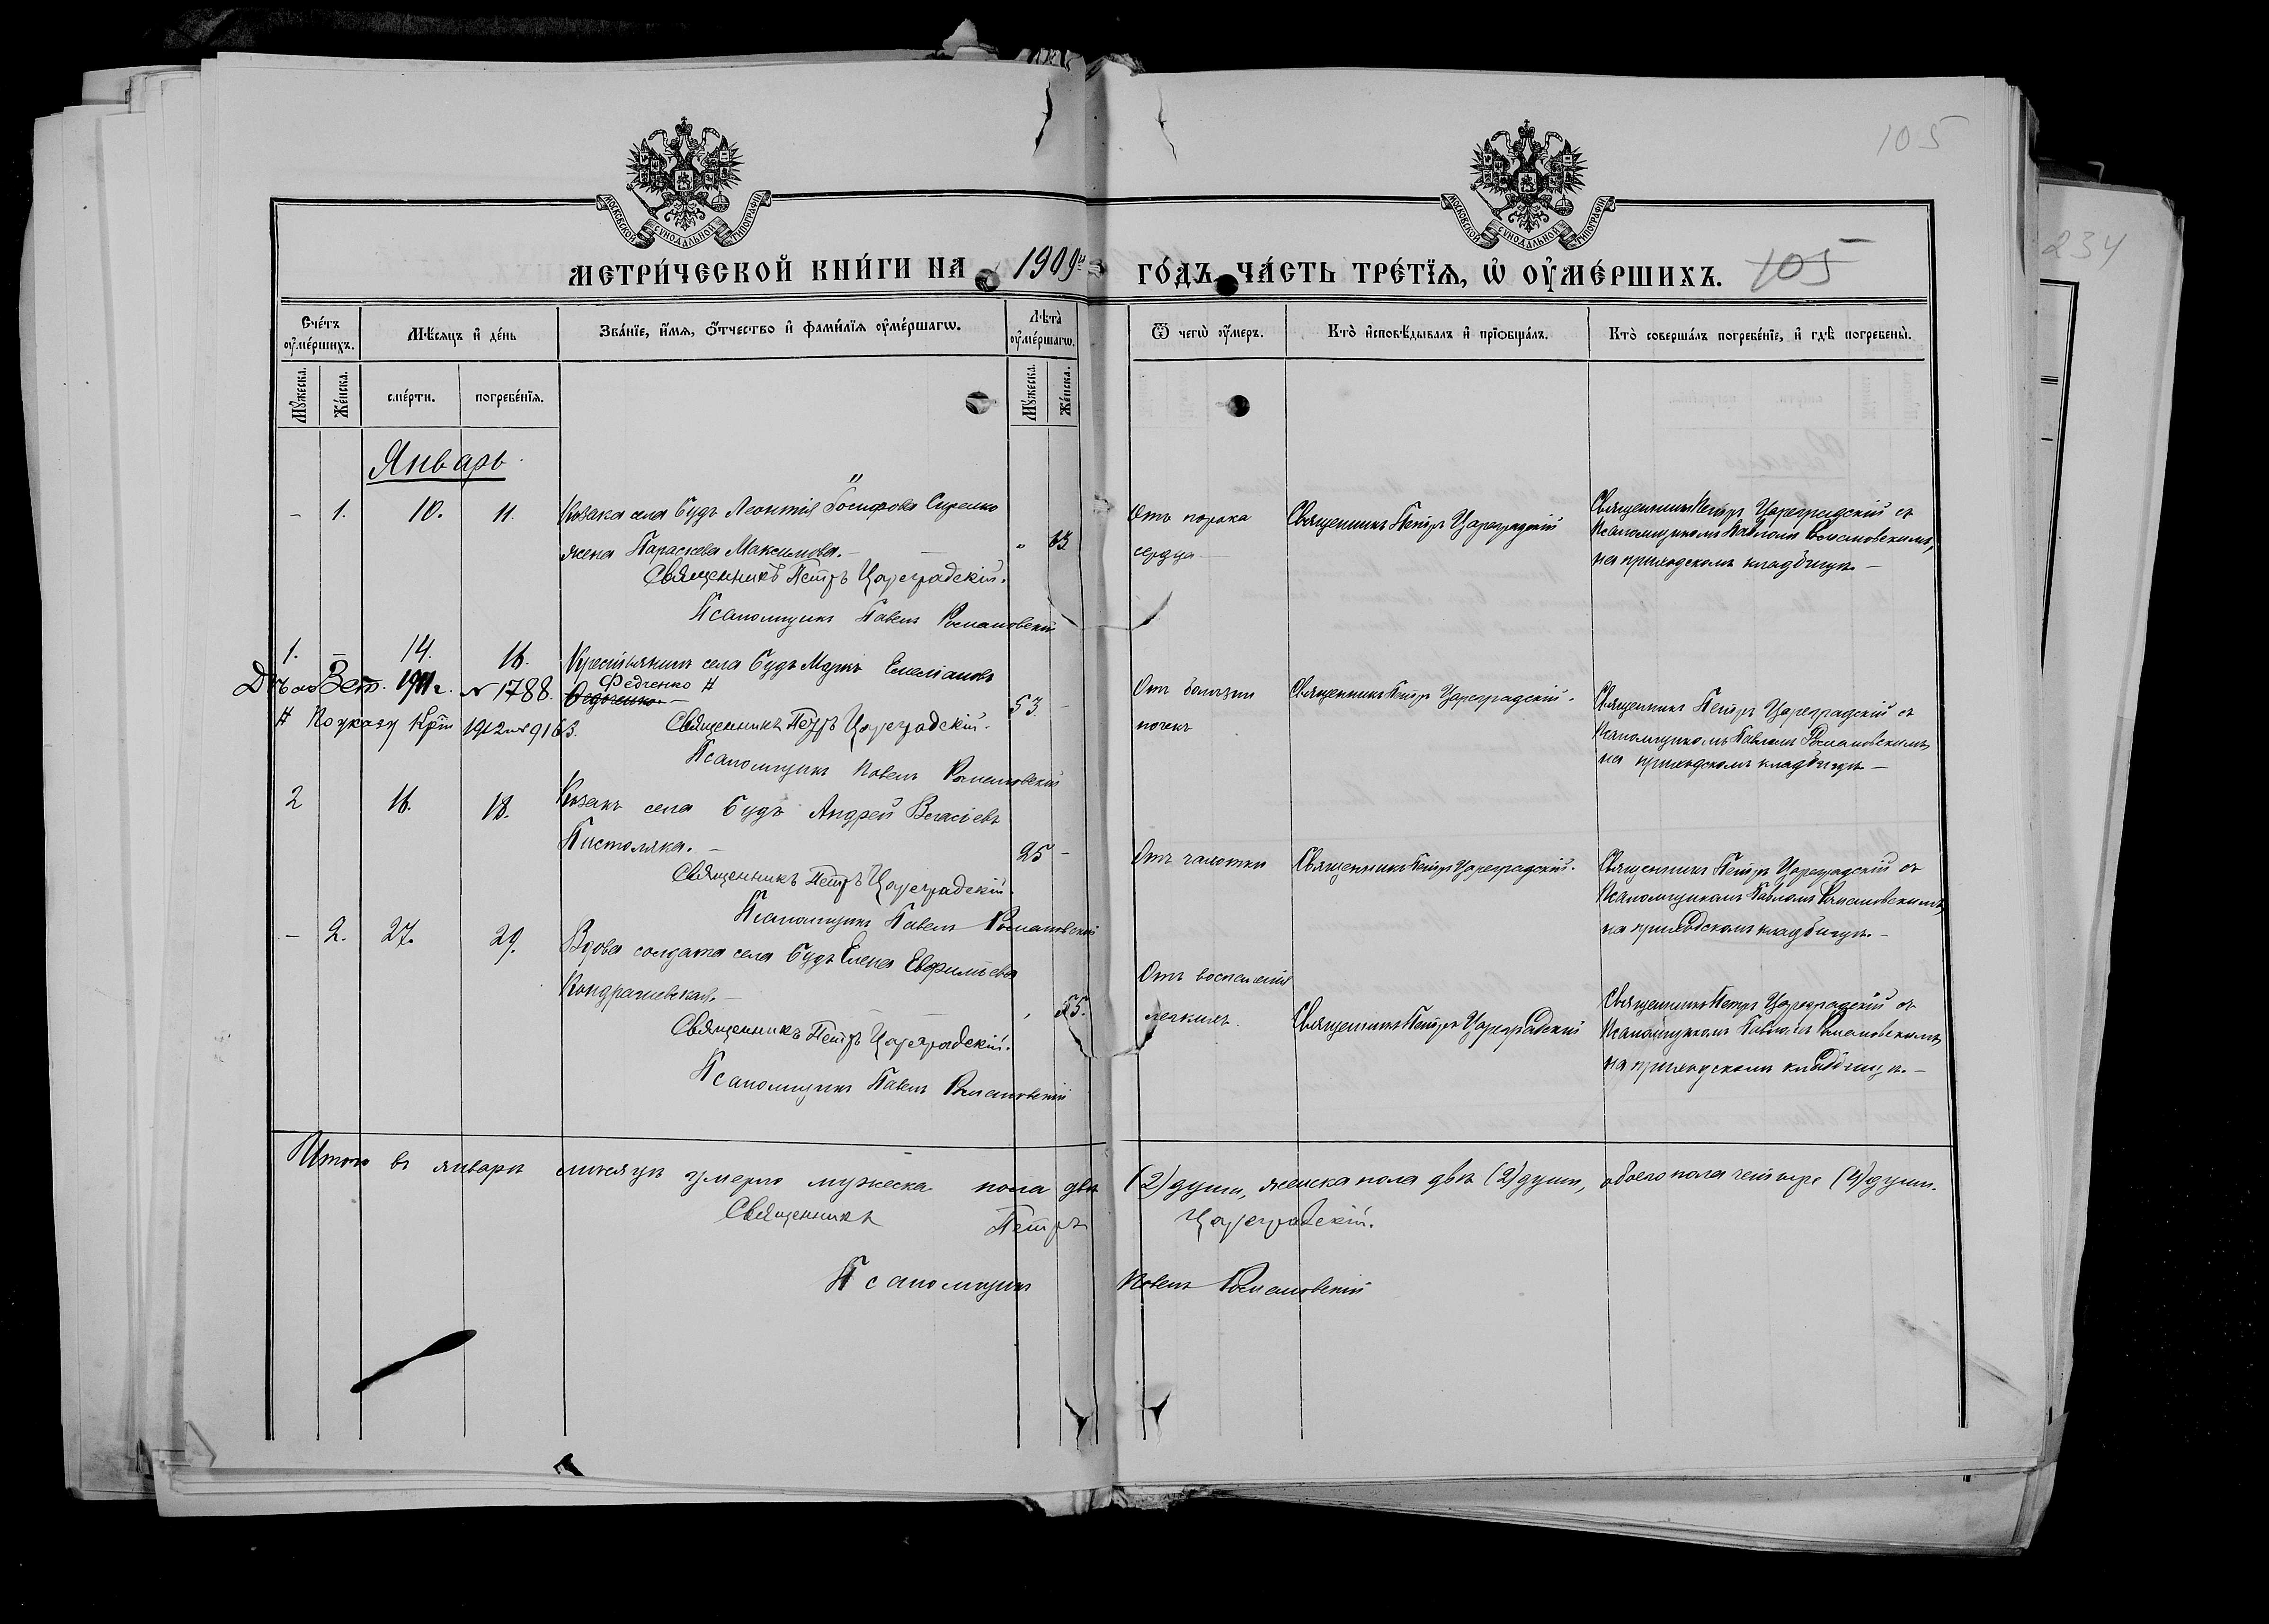 105
234
МОСКОВСКОЙ СУНОДАЛЬНОЙ ТИПОГРАФІИ
МОСКОВСКОЙ СУНОДАЛЬНОЙ ТИПОГРАФІИ
МЕТРИ́ЧЕСКОЙ КНИ́ГИ НА 1909й ГО́ДЪ, ЧА́СТЬ ТРЕ́ТЇѦ, Ѡ҆ ОУ҆МЕ́РШИХЪ. 105
Сче́тъ оу҆ме́ршихъ.
Мѣ́сѧцъ и҆ де́нь
Зва́нїе, и҆́мѧ, ѻ҆́тчество и҆ фами́лїѧ оу҆ме́ршагѡ.
Лѣ́та оу҆ме́ршагѡ.
Ѿ чегѡ̀ оу҆́меръ.
Кто̀ и҆сповѣ́дывалъ и҆ прїѡбща́лъ.
Кто̀ соверша́лъ погребе́нїе, и҆ гдѣ̀ погребены̀.
Мꙋ́жеска.
Же́нска.
сме́рти.
погребе́нїѧ.
Мꙋ́жеска.
Же́нска.
Январь.
- 1. 10. 11. Козака села Будъ Леонтія Іосифова Сиренко
жена Параскева Максимова. - „ 63
Священникъ Петръ Цареградскій.
Псаломщикъ Павелъ Романовскій
Отъ порока
сердца
Священникъ Петръ Цареградскій
Священникъ Петръ Цареградскій съ
Псаломщикомъ Павломъ Романовскимъ,
на приходскомъ кладбищѣ. -
1. - 14. 16. Крестьянинъ села Будъ Маркъ Емеліановъ
1911 г. № 1788. Федченко #
53. -
# По указу 1912 № 9163. Священникъ Петръ Цареградскій.
Псаломщикъ Павелъ Романовскій
Отъ болѣзни
почекъ
Священникъ Петръ Цареградскій.
Священникъ Петръ Цареградскій съ
Псаломщикомъ Павломъ Романовскимъ
на приходскомъ кладбищѣ -
2 16. 18. Козакъ села Будъ Андрей Власіевъ
Пистоляка. - 25 -
Священникъ Петръ Цареградскій.
Псаломщикъ Павелъ Романовскій
Отъ чахотки
Священникъ Петръ Цареградскій.
Священникъ Петръ Цареградскій съ
Псаломщикомъ Павломъ Романовскимъ,
на приходскомъ кладбищѣ. -
- 2. 27. 29. Вдова солдата села Будъ Елена Евфиміева
Кондрашевская. - 55.
Священникъ Петръ Цареградскій.
Псаломщикъ Павелъ Романовскій
Отъ воспаленія
легкихъ.
Священникъ Петръ Цареградскій
Священникъ Петръ Цареградскій съ
Псаломщикомъ Павломъ Романовскимъ,
на приходскомъ кладбищѣ. -
Итого въ январѣ мѣсяцѣ умерло мужеска пола двѣ (2) души, женска пола двѣ (2) души, обоего пола четыре (4) души.
Священникъ Петръ Цареградскій.
Псаломщикъ Павелъ Романовскій